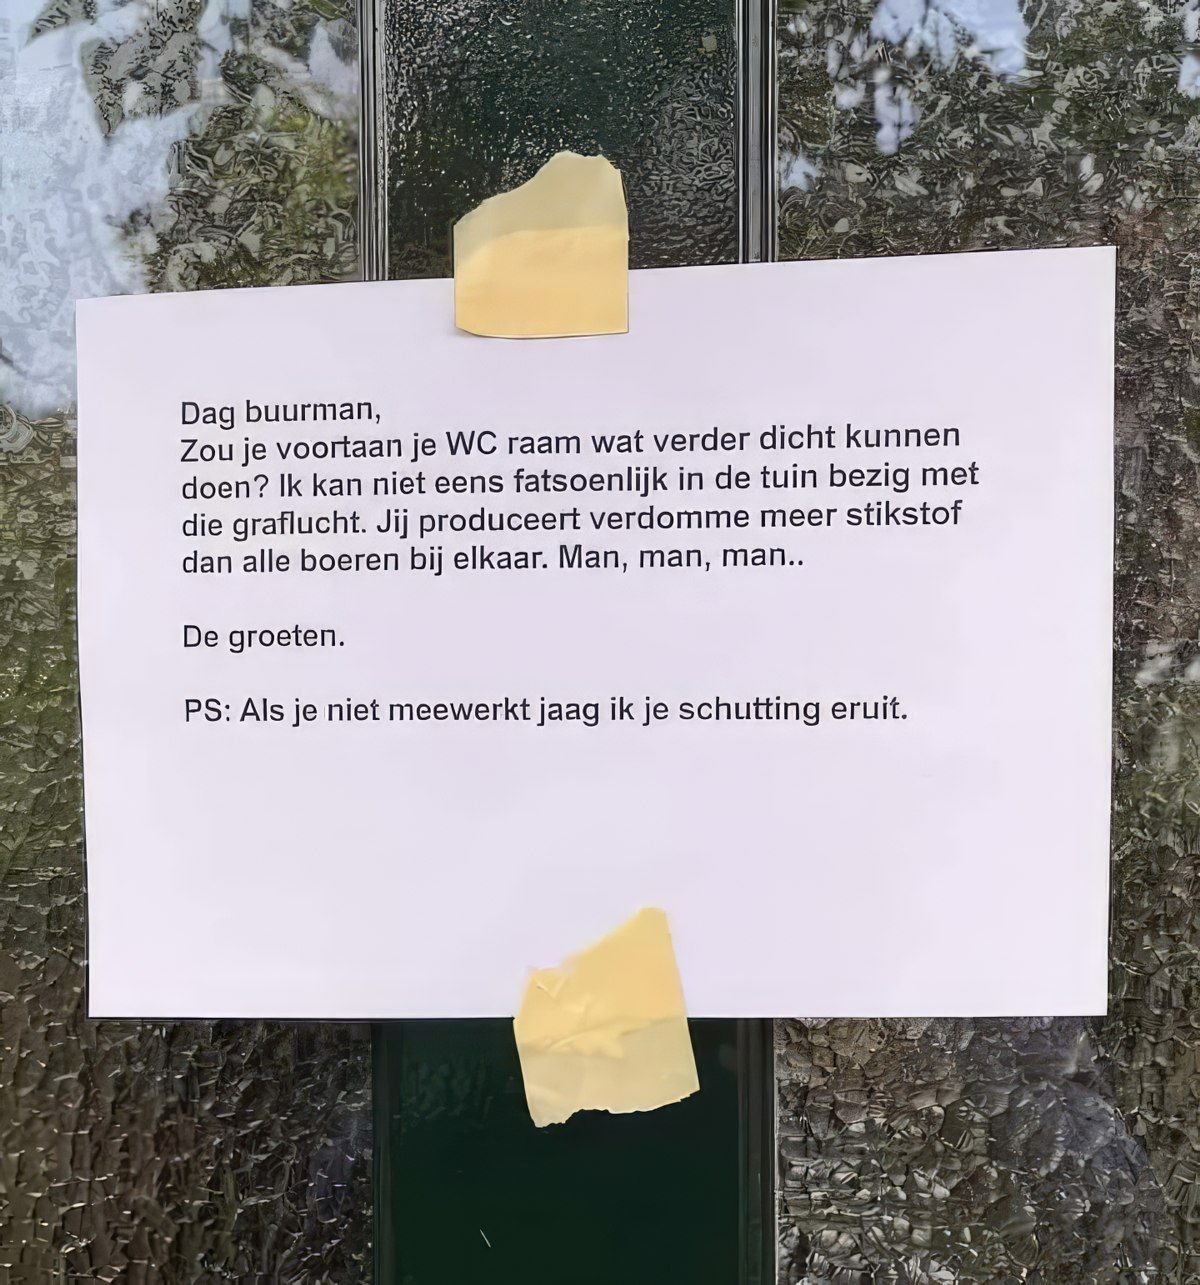 Dag buurman,
Zou je voortaan je WC raam wat verder dicht kunnen
doen? Ik kan niet eens fatsoenlijk in de tuin bezig met
die graflucht. Jij produceert verdomme meer stikstof
dan alle boeren bij elkaar. Man, man, man..
De groeten.
PS: Als je niet meewerkt jaag ik je schutting eruit.